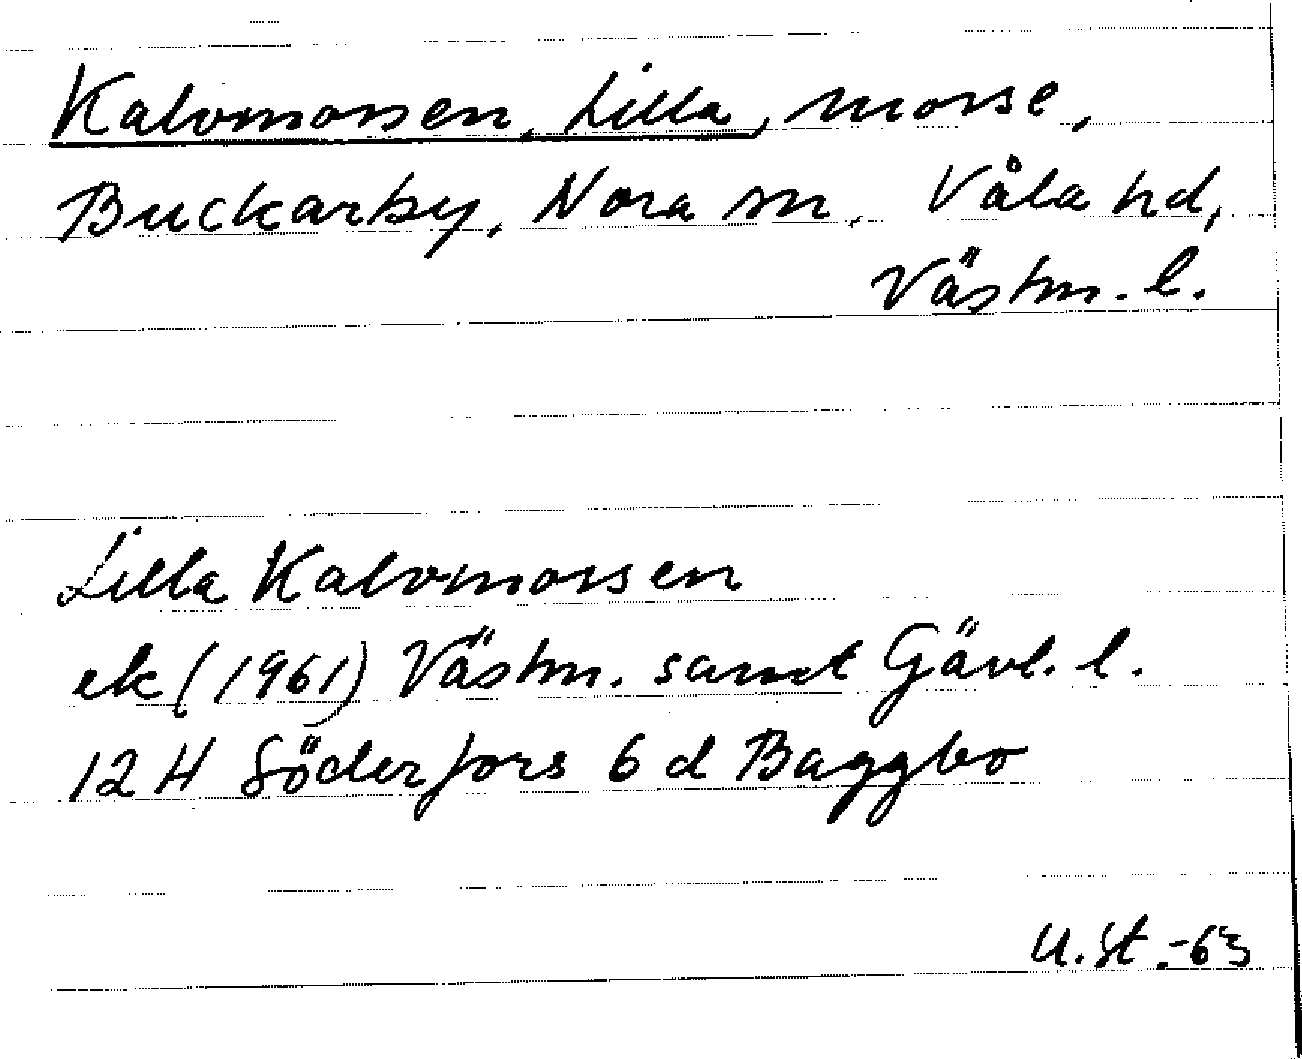 Kalvmossen, Lilla, mosse,
Buckarby, Nora sn, Våla hd,
Västm. l.
Lilla Kalvmossen
ek (1961) Västm. samt Gävl. l.
12 H Söderfors 6 d Baggbo
U. St. -63